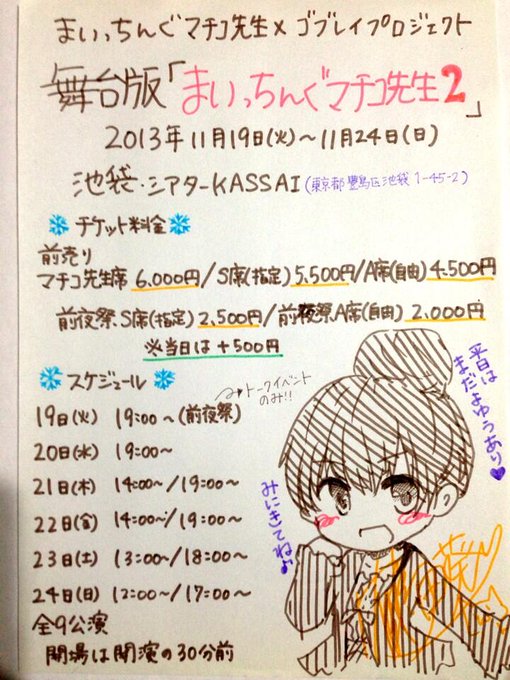 まいっちんぐマチコ先生×ゴブレイプロジェクト
舞台版「まいっちんぐマチコ先生2」
2013年11月19日(火)~11月24日(日)
池袋・シアターKASSAI(東京都豊島区池袋1-45-2)
チケット料金
前売り
マチコ先生席 6,000円/S席(指定)5,500円/A席(自由)4,500円
前夜祭S席(指定)2,500円/前夜祭A席(自由)2,000円
※当日は+500円
スケジュール
19日(火) 19:00~(前夜祭)
→トークイベントのみ!!
20日(水) 19:00~
21日(木) 14:00~/19:00~
22日(金) 14:00~/19:00~
23日(土) 13:00~/18:00~
24日(日) 12:00~/17:00~
全9公演
開場は開演の30分前
平日は
まだよゆうあり♥
みにきてね♪